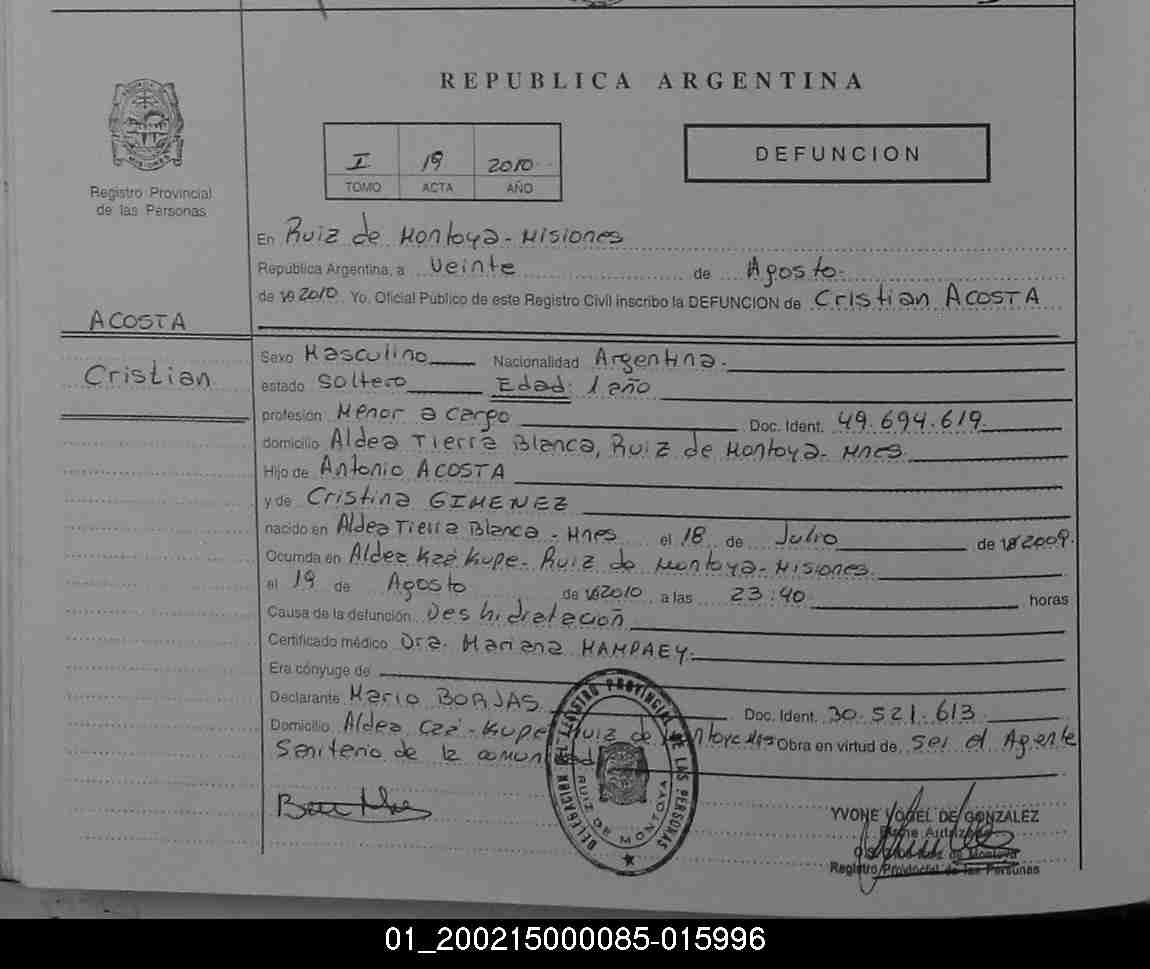 REPUBLICA ARGENTINA
MISIONES
Registro Provincial
de las Personas
I 19 2010
TOMO ACTA AÑO
DEFUNCION
En Ruiz de Montoya - Misiones
Republica Argentina, a Veinte de Agosto.
de 19 2010. Yo, Oficial Público de este Registro Civil inscribo la DEFUNCION de Cristian ACOSTA
ACOSTA
Cristian
Sexo Masculino Nacionalidad Argentina.
estado Soltero Edad: 1 año
profesión Menor a cargo Doc. Ident. 49.694.619.
domicilio Aldea Tierra Blanca, Ruiz de Montoya - Mnes.
Hijo de Antonio ACOSTA
y de Cristina GIMENEZ
nacido en Aldea Tierra Blanca - Mnes el 18 de Julio de 19 2009.
Ocurrida en Aldea Kaá Kupe - Ruiz de Montoya - Misiones.
el 19 de Agosto de 19 2010 a las 23:40 horas
Causa de la defunción Deshidratación
Certificado médico Dra. Mariana MAMPAEY.
Era cónyuge de
Declarante Mario BORJAS Doc. Ident. 30.521.613
Domicilio Aldea Caá-Kupe Ruiz de Montoya Mnes Obra en virtud de Ser el Agente
Sanitario de la comunidad
DELEGACION DEL REGISTRO PROVINCIAL DE LAS PERSONAS
RUIZ DE MONTOYA
YVONE VOGEL DE GONZALEZ
Ruiz de Montoya
Registro Provincial de las Personas
01_200215000085-015996